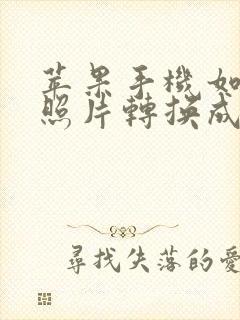 苹果手機如
照片轉换成
尋找失落的愛